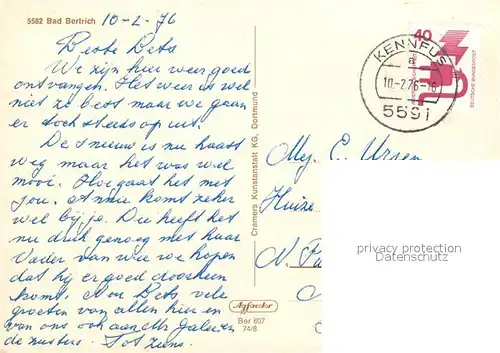 5582 Bad Bertrich 10-2-76
Beste Bets
We zijn hier weer goed
ontvangen. Het weer is wel
niet zo best maar we gaan
er toch steeds op uit.
De sneeuw is nu haast
weg maar het was wel
mooi. Hoe gaat het met
jou. Annie komt zeker
wel bij je. Die heeft het
nu druk genoeg met haar
Vader van wie we hopen
dat hij er goed doorheen
komt. Nou Bets vele
groeten van allen hier en
van ons ook aan de
zusters. Tot ziens.
Cramers Kunstanstalt KG, Dortmund
Agfacolor
Ber 607
74/8
40
DEUTSCHE BUNDESPOST
KENNFUS
a
10.-2.76-16
5591
Mej. E.
Huize
N.
privacy protection
Datenschutz